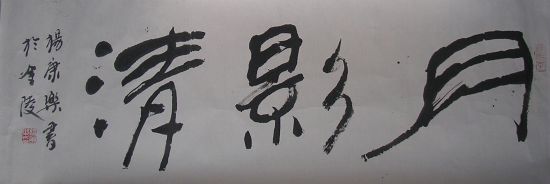 月影清
楊康樂書
於金陵